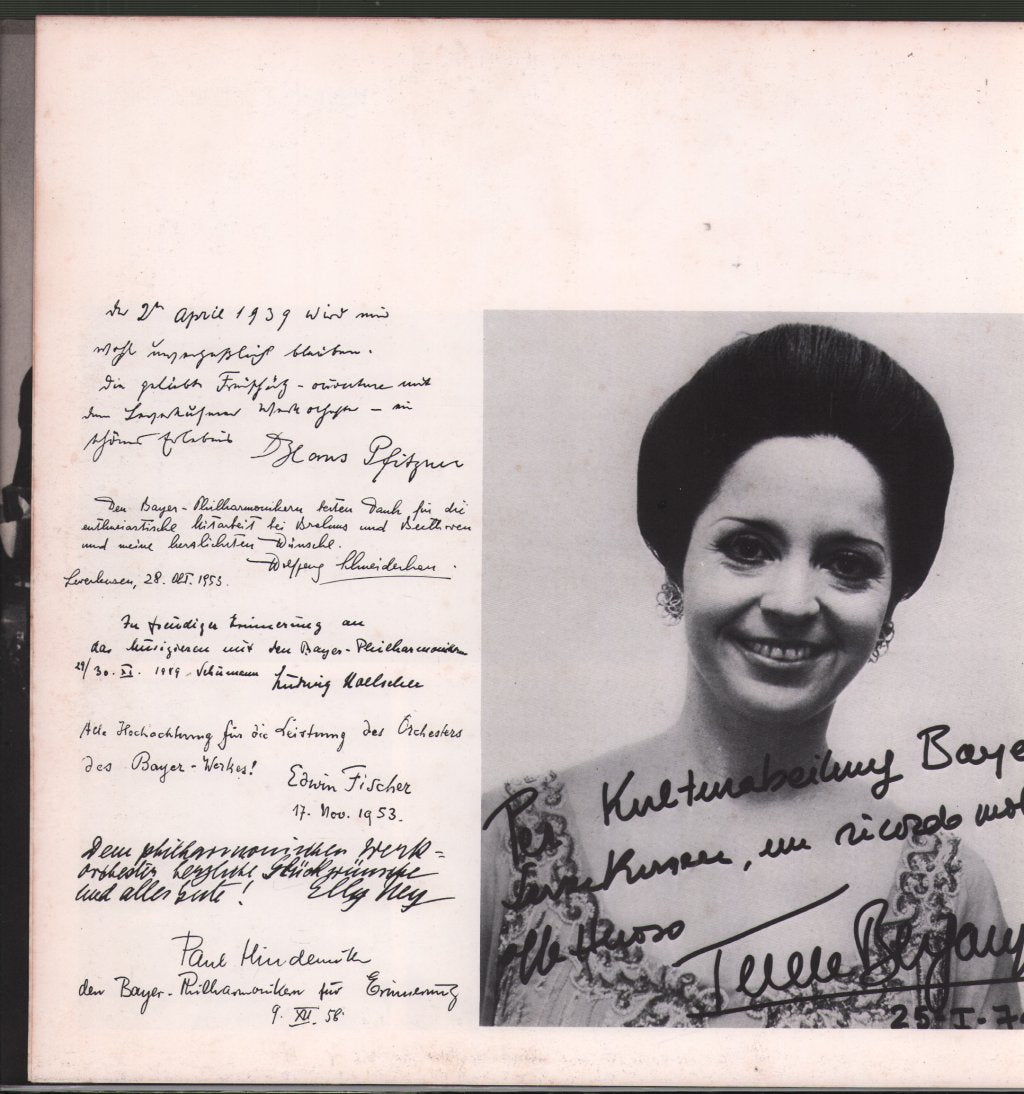 Der 2te April 1939 wird mir
wohl unvergeßlich bleiben.
Die geliebte Freischütz-ouverture mit
dem Leverkusener Werkorchester - ein
schönes Erlebnis
Dr Hans Pfitzner
Den Bayer-Philharmonikern besten Dank für die
enthusiastische Mitarbeit bei Brahms und Beethoven
und meine herzlichsten Wünsche.
Wolfgang Schneiderhan.
Leverkusen, 28. Okt. 1953.
In freudiger Erinnerung an
das Musizieren mit den Bayer-Philharmonikern
29/30. XI. 1949 Schumann Ludwig Hoelscher
Alle Hochachtung für die Leistung des Orchesters
des Bayer-Werkes!
Edwin Fischer
17. Nov. 1953.
Dem philharmonischen Werk=
orchester herzliche Glückwünsche
und alles Gute! Elly Ney
Paul Hindemith
den Bayer-Philharmonikern zur Erinnerung
9. XII. 58
Per Kulturabeilung Baye
Leverkusen, un ricordo mol
affettuoso
Teresa Bergan
25-I-7